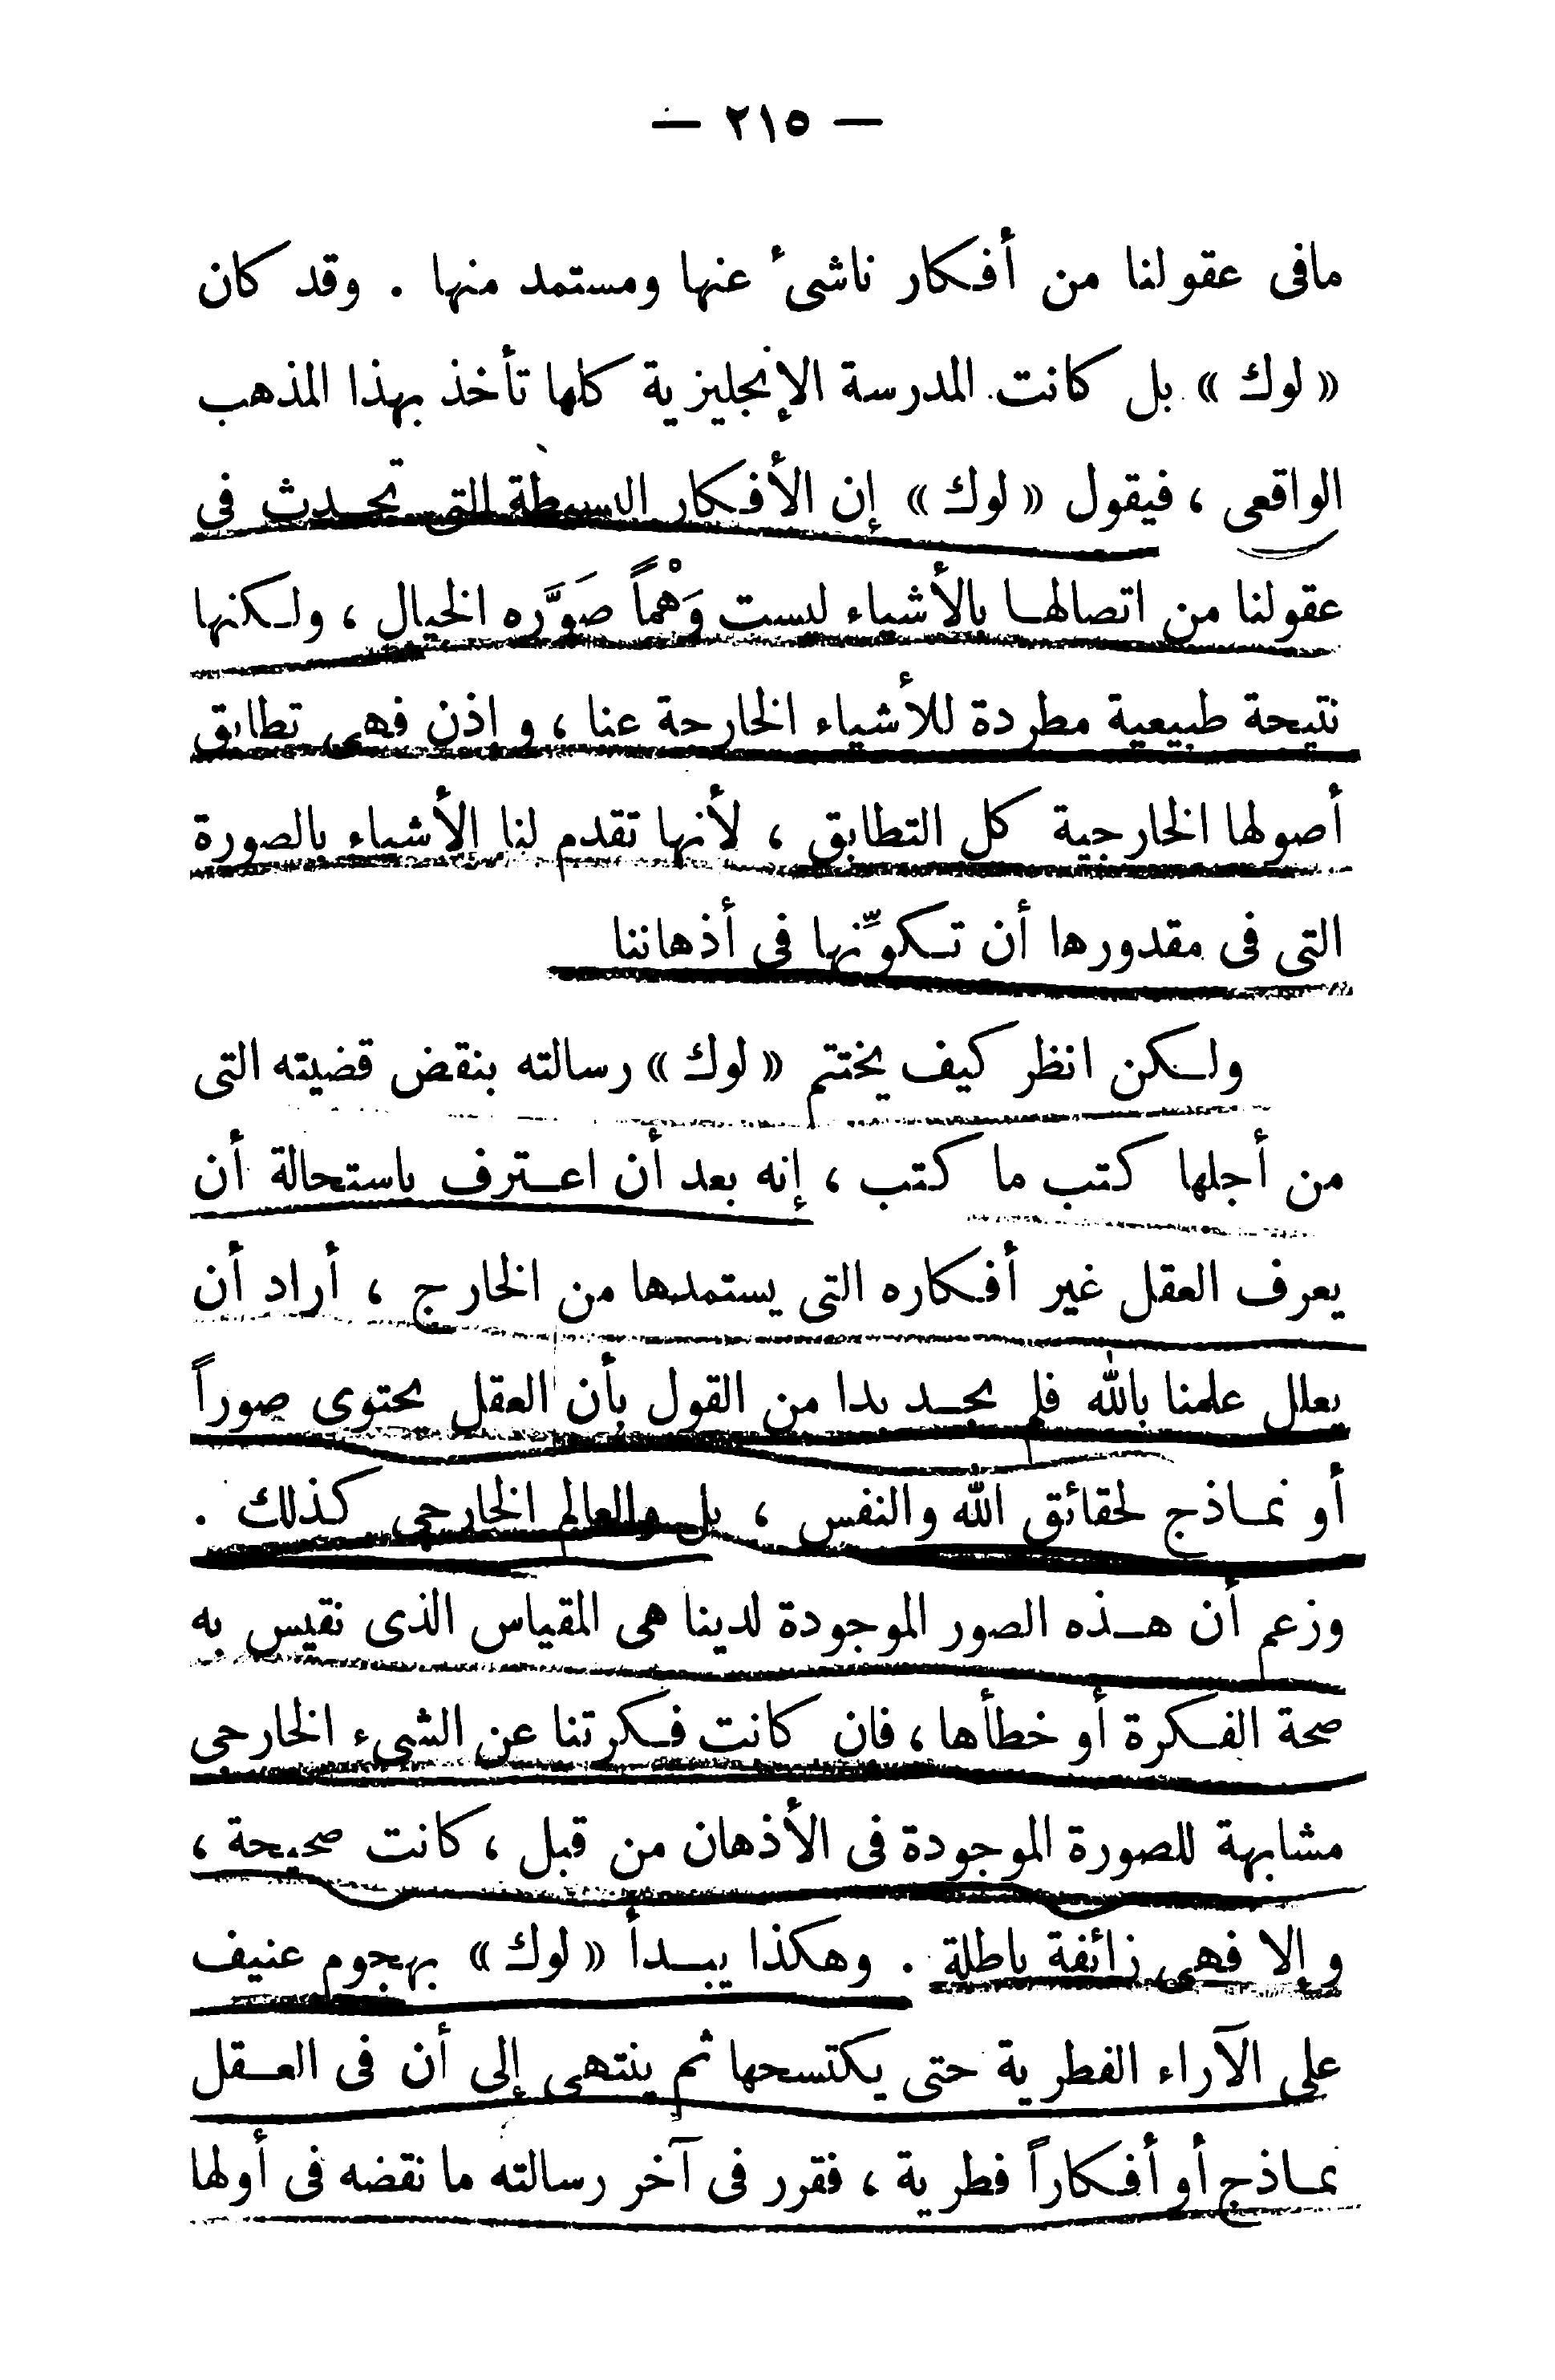 — ٢١٥ —
مافى عقولنا من أفكار ناشىء عنها ومستمد منها . وقد كان
« لوك » بل كانت المدرسة الإنجليزية كلها تأخذ بهذا المذهب
الواقعى ، فيقول « لوك » إن الأفكار البسيطة التى تحدث فى
عقولنا من اتصالها بالأشياء ليست وَهْماً صَوَّره الخيال ، ولكنها
نتيجة طبيعية مطردة للأشياء الخارجة عنا ، و إذن فهى تطابق
أصولها الخارجية كل التطابق ، لأنها تقدم لنا الأشياء بالصورة
التى فى مقدورها أن تكوِّنها فى أذهاننا
ولكن انظر كيف يختتم « لوك » رسالته بنقض قضيته التى
من أجلها كتب ما كتب ، إنه بعد أن اعترف باستحالة أن
يعرف العقل غير أفكاره التى يستمدها من الخارج ، أراد أن
يعلل علمنا بالله فلم يجد بدا من القول بأن العقل يحتوى صوراً
أو نماذج لحقائق الله والنفس ، بل والعالم الخارجى كذلك .
وزعم أن هذه الصور الموجودة لدينا هى المقياس الذى نقيس به
صحة الفكرة أو خطأها ، فان كانت فكرتنا عن الشىء الخارجى
مشابهة للصورة الموجودة فى الأذهان من قبل ، كانت صحيحة ،
و إلا فهى زائفة باطلة . وهكذا يبدأ « لوك » بهجوم عنيف
على الآراء الفطرية حتى يكتسحها ثم ينتهى إلى أن فى العقل
نماذج أو أفكاراً فطرية ، فقرر فى آخر رسالته ما نقضه فى أولها